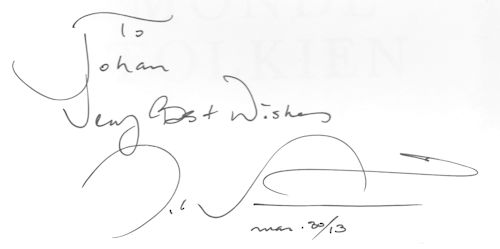 MONDE
TOLKIEN
To
Johan
Very Best Wishes
mar. 20/13